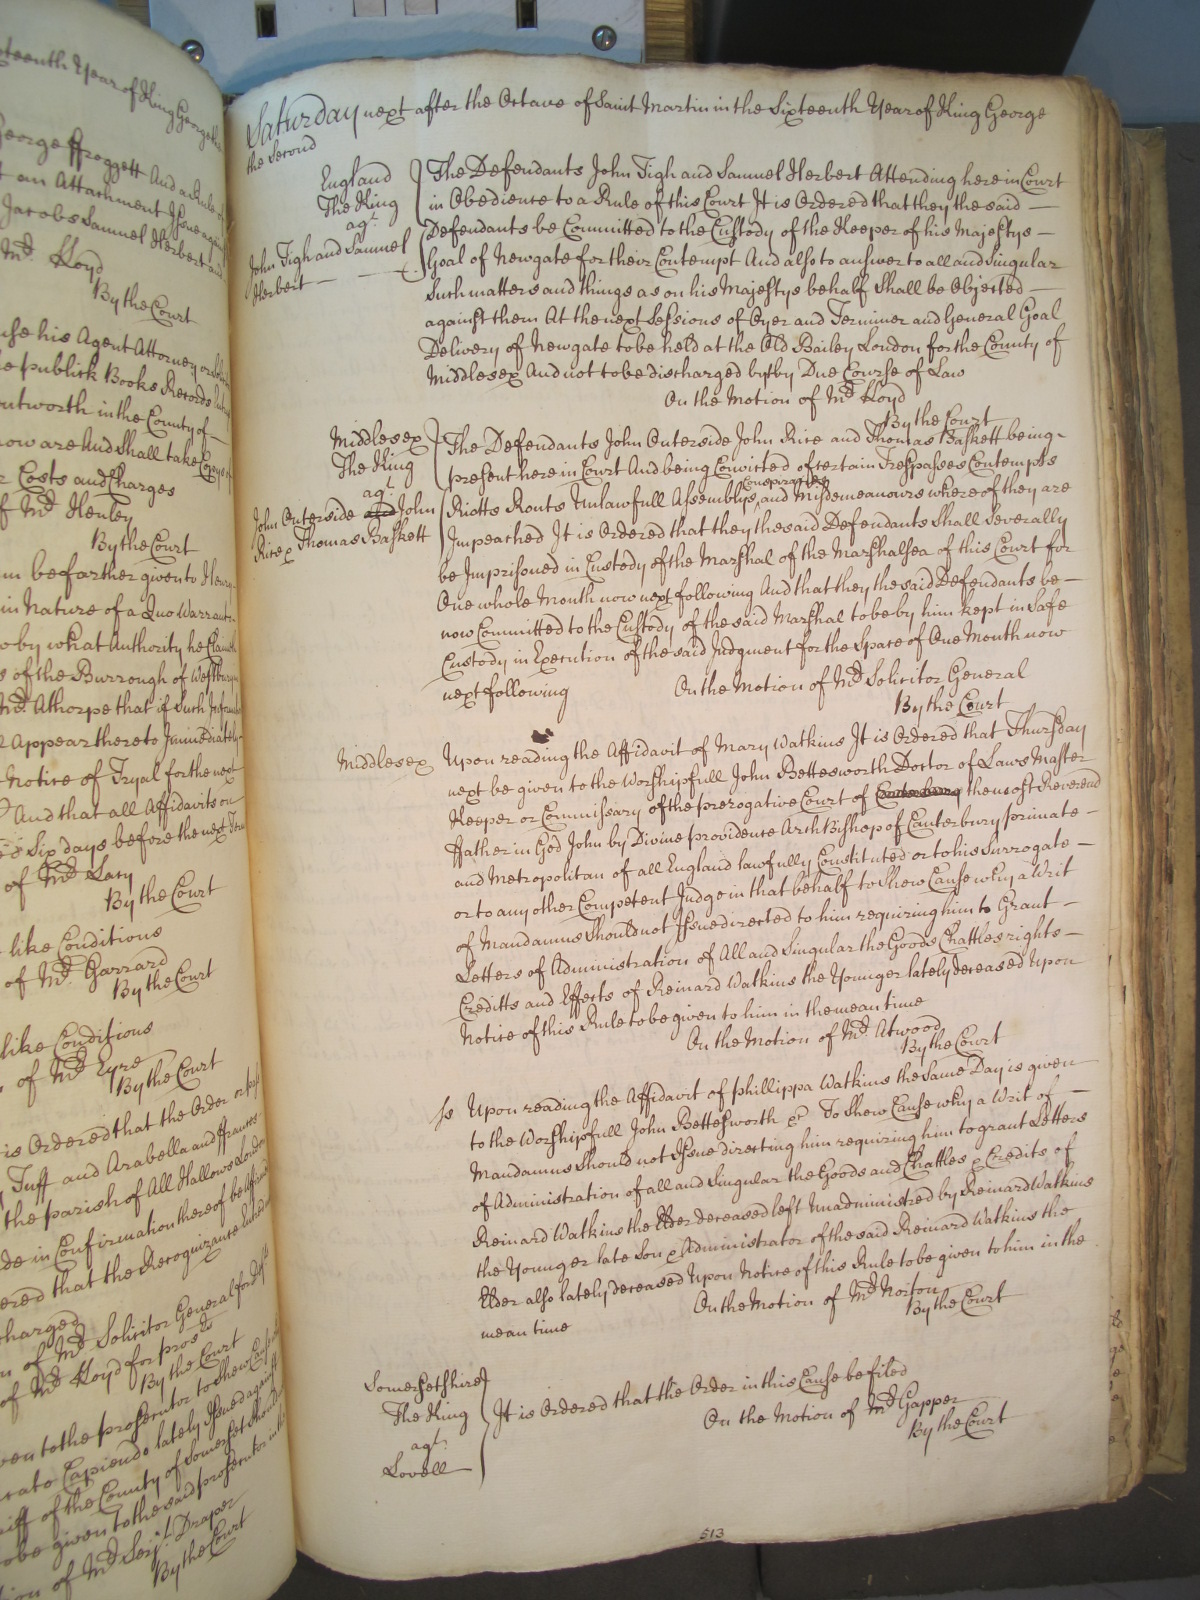 teenth Year of King George the
George ffroggett And a Rule
an Attachment Issue against
Jacobs Samuel Herbert and
Mr. Lloyd
By the Court
use his Agent Attorney or
publick Books Records
ntworth in the County of
now are And shall take Copys
Costs and Charges
of Mr. Henley
By the Court
be farther given to Henry
in Nature of a Quo Warranto
by what Authority he Claims
of the Burrough of Westbury
Mr. Athorpe that if such
Appear thereto Immediately
Notice of Tryal for the next
And that all Affidavits on
Six days before the next Term
of Mr. Lacy
By the Court
like Conditions
of Mr. Garrard
By the Court
like Conditions
of Mr. Eyre
By the Court
is Ordered that the Order
Tuff and Arabella and ffrances
the parish of All Hallows London
in Confirmation thereof be
ered that the Recognizance
charged
of Mr. Solicitor General for
of Mr. Lloyd for prosr.
By the Court
en to the prosecutor to shew Cause
Capiendo lately Issued against
iff of the County of Somerset should
be given to the said prosecutor in the
of Mr. Serjt. Draper
By the Court
Saturday next after the Octave of Saint Martin in the Sixteenth Year of King George
the Second
England
The King
agt.
John Tigh and Samuel
Herbert
The Defendants John Tigh and Samuel Herbert Attending here in Court
in Obedience to a Rule of this Court It is Ordered that they the said
Defendants be Committed to the Custody of the Keeper of his Majestys
Goal of Newgate for their Contempt And also to answer to all and singular
Such matters and things as on his Majestys behalf shall be Objected
against them At the next Sessions of Oyer and Terminer and General Goal
Delivery of Newgate to be held at the Old Bailey London for the County of
Middlesex And not to be discharged but by Due Course of Law
On the Motion of Mr. Lloyd
By the Court
Middlesex
The King
agt.
John Outerside John
Rice & Thomas Baskett
The Defendants John Outerside John Rice and Thomas Baskett being
present here in Court And being Convicted of certain Trespasses Contempts
Riotts Routs Unlawfull Assemblys Conspiracies and Misdemeanours whereof they are
Impeached It is Ordered that they the said Defendants Shall Severally
be Imprisoned in Custody of the Marshal of the Marshalsea of this Court for
One whole Month now next following And that they the said Defendants be
now Committed to the Custody of the said Marshal to be by him kept in Safe
Custody in Execution of the said Judgment for the Space of One Month now
next following
On the Motion of Mr. Solicitor General
By the Court
Middlesex
Upon reading the Affidavit of Mary Watkins It is Ordered that Thursday
next be given to the Worshipfull John Bettesworth Doctor of Laws Master
Keeper or Commissary of the prerogative Court of the most Reverend
ffather in God John by Divine providence ArchBishop of Canterbury primate
and Metropolitan of all England lawfully Constituted or to his Surrogate
or to any other Competent Judge in that behalf to Shew Cause why a Writ
of Mandamus Should not Issue directed to him requiring him to Grant
Letters of Administration of All and Singular the Goods Chattles rights
Creditts and Effects of Reinard Watkins the Younger lately deceased Upon
Notice of this Rule to be given to him in the mean time
On the Motion of Mr. Atwood
By the Court
Upon reading the Affidavit of Phillippa Watkins the same Day is given
to the Worshipfull John Bettesworth &c To Shew Cause why a Writ of
Mandamus Should not Issue directing him requiring him to grant Letters
of Administration of all and Singular the Goods and Chattles & Credits of
Reinard Watkins the Elder deceased left Unadministred by Reinard Watkins
the Younger late Son & Administrator of the said Reinard Watkins the
Elder also lately deceased Upon Notice of this Rule to be given to him in the
mean time
On the Motion of Mr. Norton
By the Court
Somersetshire
The King
agt.
Lovell
It is Ordered that the Order in this Cause be filed
On the Motion of Mr. Gapper
By the Court
513